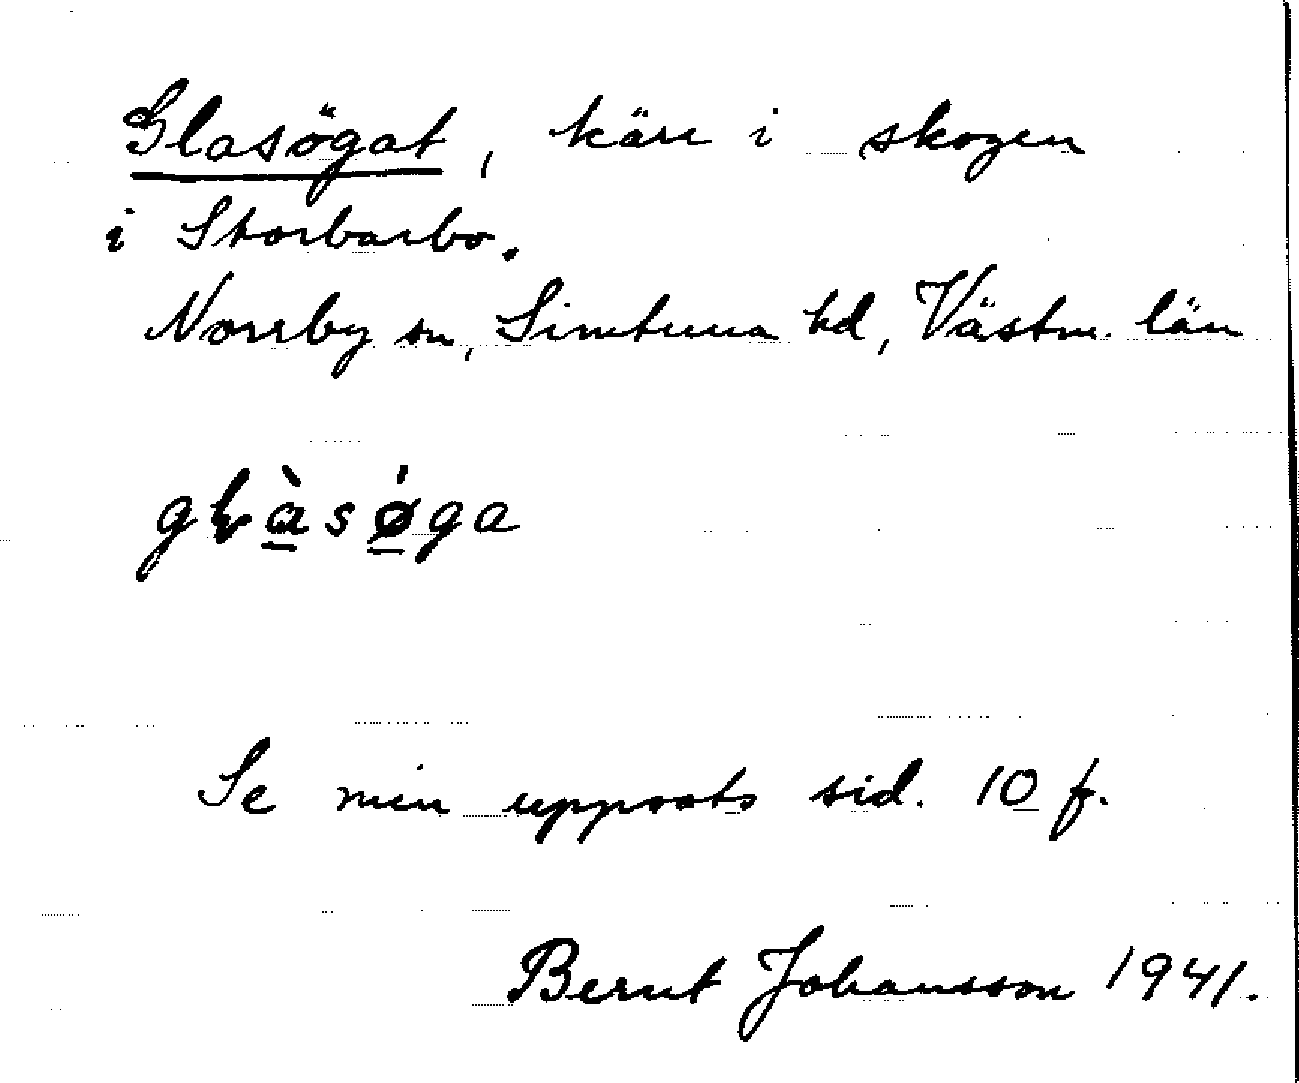 Glasögat, kärr i skogen
i Storbarbo.
Norrby sn, Simtuna hd, Västm. län
glàsø̀ga
Se min uppsats sid. 10 f.
Bernt Johansson 1941.